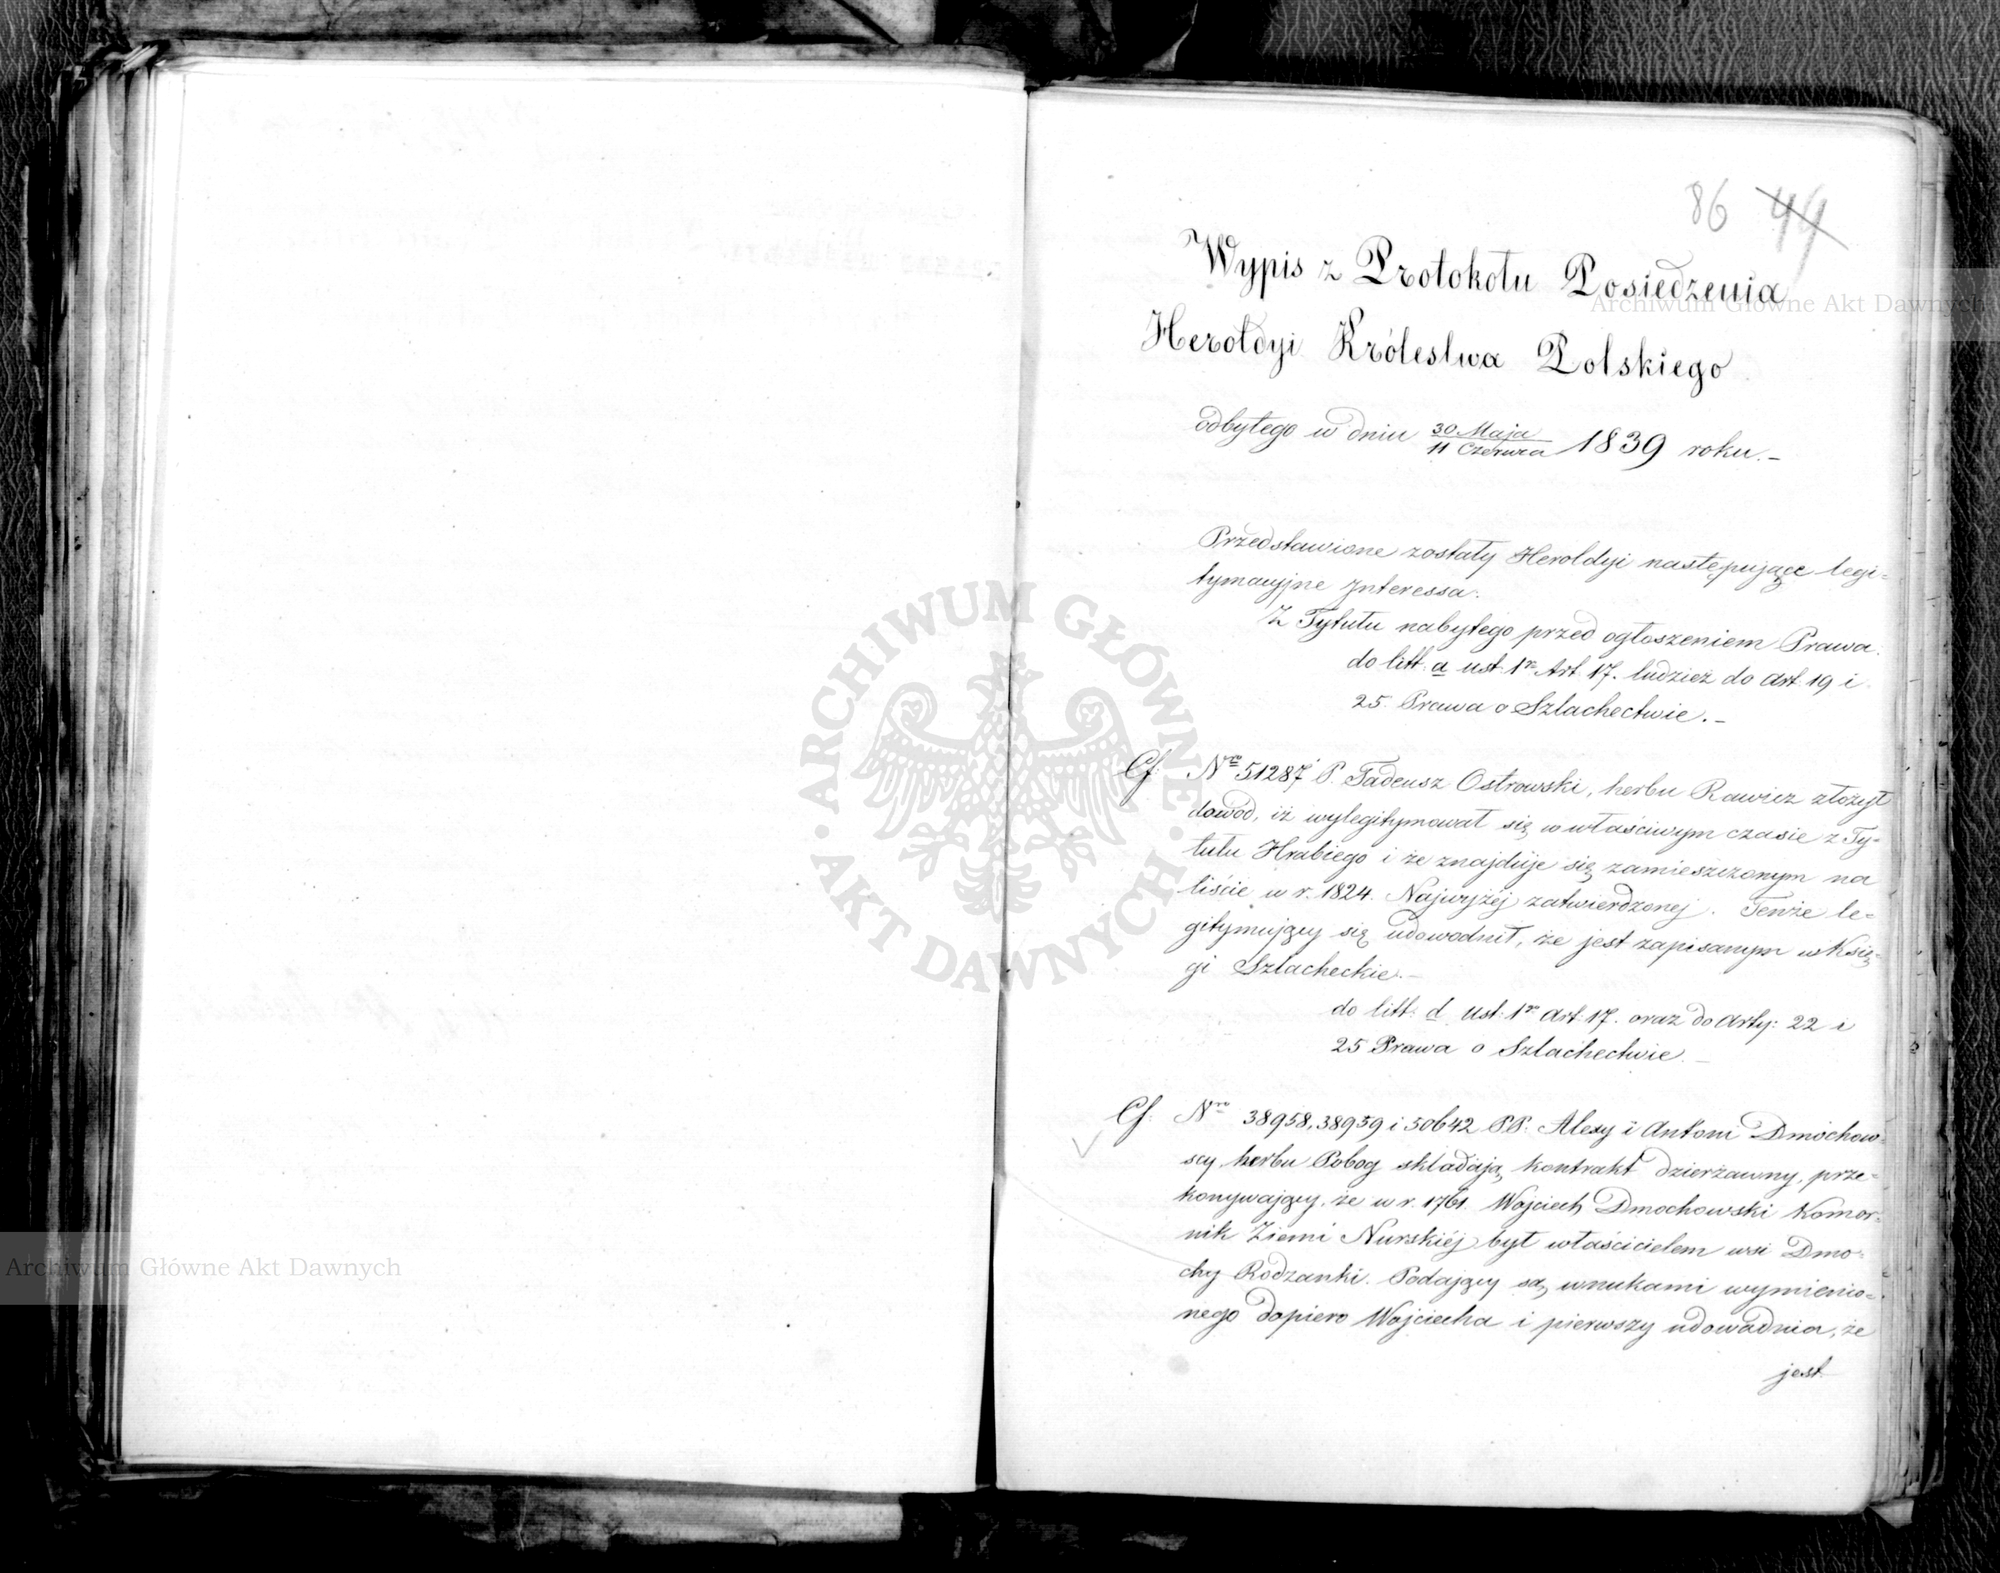 86 49
Wypis z Protokołu Posiedzenia
Herołdyi Królestwa Polskiego
odbytego w dniu 30 Maja / 11 Czerwca 1839 roku.–
Przedstawione zostały Heroldyi następujące legi-
tymacyjne Interessa:
Z Tytułu nabytego przed ogłoszeniem Prawa.
do litt: a ust: 1º Art. 17. tudzież do art. 19 i
25 Prawa o Szlachectwie.–
Cf: Nro 51287 P. Tadeusz Ostrowski, herbu Rawicz złożył
dowód, iż wylegitymował się w właściwym czasie z Ty-
tułu Hrabiego i że znajduje się zamieszczonym na
liście w r. 1824. Najwyżéj zatwierdzonej. Tenże le-
gitymujący się udowodnił, że jest zapisanym w Księ-
gi Szlacheckie.–
do litt: d ust: 1º art. 17. oraz do Arty: 22 i
25 Prawa o Szlachectwie.–
Cf: Nro 38958, 38959 i 50642 PP. Alexy i Antoni Dmochow-
scy, herbu Pobog składają kontrakt dzierżawny, prze-
konywający, że w r. 1761. Wojciech Dmochowski Komor-
nik Ziemi Nurskiéj był właścicielem wsi Dmo-
chy Rodzanki. Podający są wnukami wymienio-
nego dopiero Wojciecha i pierwszy udowadnia, że
jest
Archiwum Główne Akt Dawnych
Archiwum Główne Akt Dawnych
ARCHIWUM GŁÓWNE · AKT DAWNYCH ·